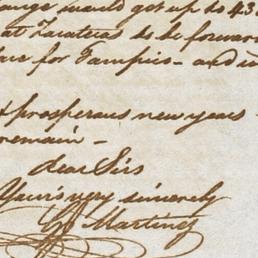 would get up to 43
at Zacatecas to be forwar
for Tampico - and i
prosperous new years -
remain -
dear Sirs
Yours very sincerely
Martinez